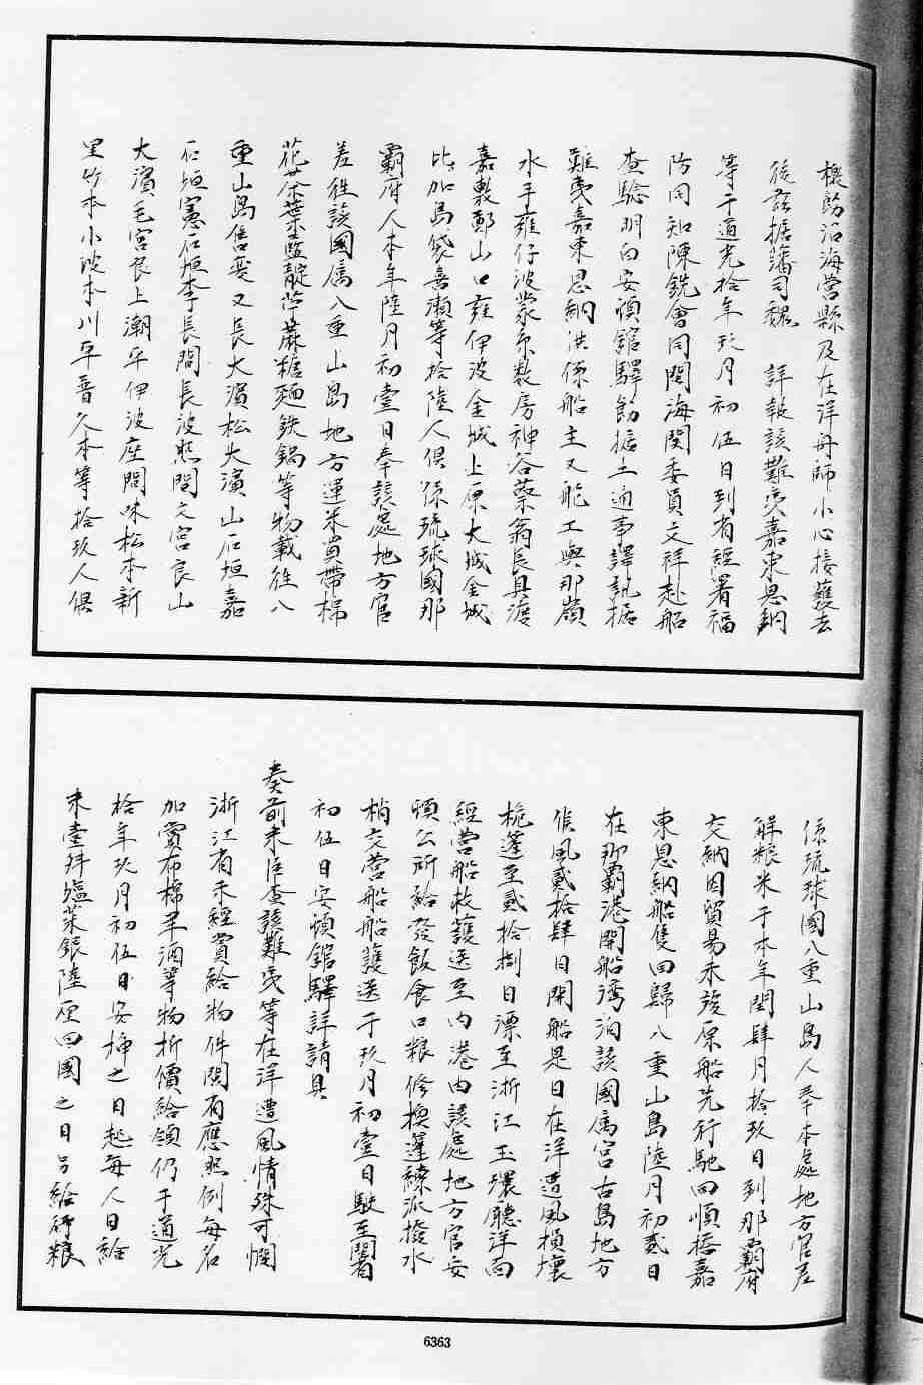 檄飭沿海營縣及在洋舟師小心接護去
後茲據藩司魏 詳報該難夷嘉東恩納
等于道光拾年玖月初伍日到省經署福
防同知陳銑會同閩海関委員文祥赴船
查驗明白安頓館驛飭據土通事譯訊據
難夷嘉東恩納供係船主又舵工與那嶺
水手雍仔波蒙系数房神谷蔡翁長具渡
嘉敷鄭山口雍伊波金城上原大城金城
比加島袋喜瀬等拾陸人俱係琉球國那
霸府人本年陸月初壹日奉該處地方官
差往該國属八重山島地方運米當帶棉
花茶葉藍靛苧蔴糖麵鉄鍋等物載往八
重山島售賣又長大濱松大濱山石垣嘉
石垣憲石垣李長間長波照間文宮良山
大濱毛宮良上潮平伊波座間味松本新
里竹本小波本川平普久本等拾玖人俱
係琉球國八重山島人奉本處地方官差
解粮米于本年閏肆月拾玖日到那霸府
交納因貿易未竣原船先行馳回順搭嘉
東恩納船隻回歸八重山島陸月初貳日
在那霸港開船灣泊該國属宮古島地方
候風貳拾肆日開船是日在洋遭風損壞
桅篷至貳拾捌日漂至浙江玉環廳洋面
經營船救護送至內港由該處地方官安
頓公所給發飯食口粮修換篷練派撥水
梢交營船船護送于玖月初壹日駛至閩省
初伍日安頓館驛詳請具
奏前来臣查該難夷等在洋遭風情殊可憫
浙江省未經賞給物件閩省應照例每名
加賞布棉羊酒等物折價給領仍于道光
拾年玖月初伍日安插之日起每人日給
米壹升塩菜銀陸厘回國之日另給行粮
6363